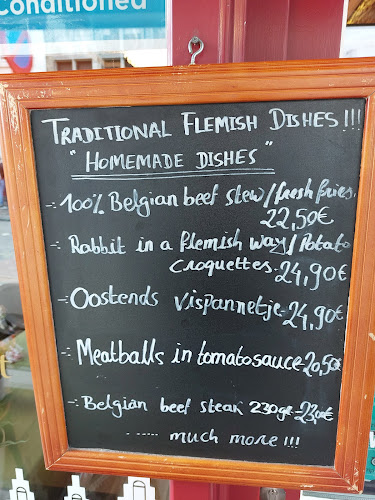 Conditioned
TRADITIONAL FLEMISH DISHES!!!
"HOMEMADE DISHES"
-: 100% Belgian beef stew/fresh fries.
22,50€
-: Rabbit in a flemish way/Potato
croquettes-24,90€
-: Oostends vispannetje-24,90€
-: Meatballs in tomatosauce 20,50€
-: Belgian beef steak 230gr-23,00€
..... much more!!!